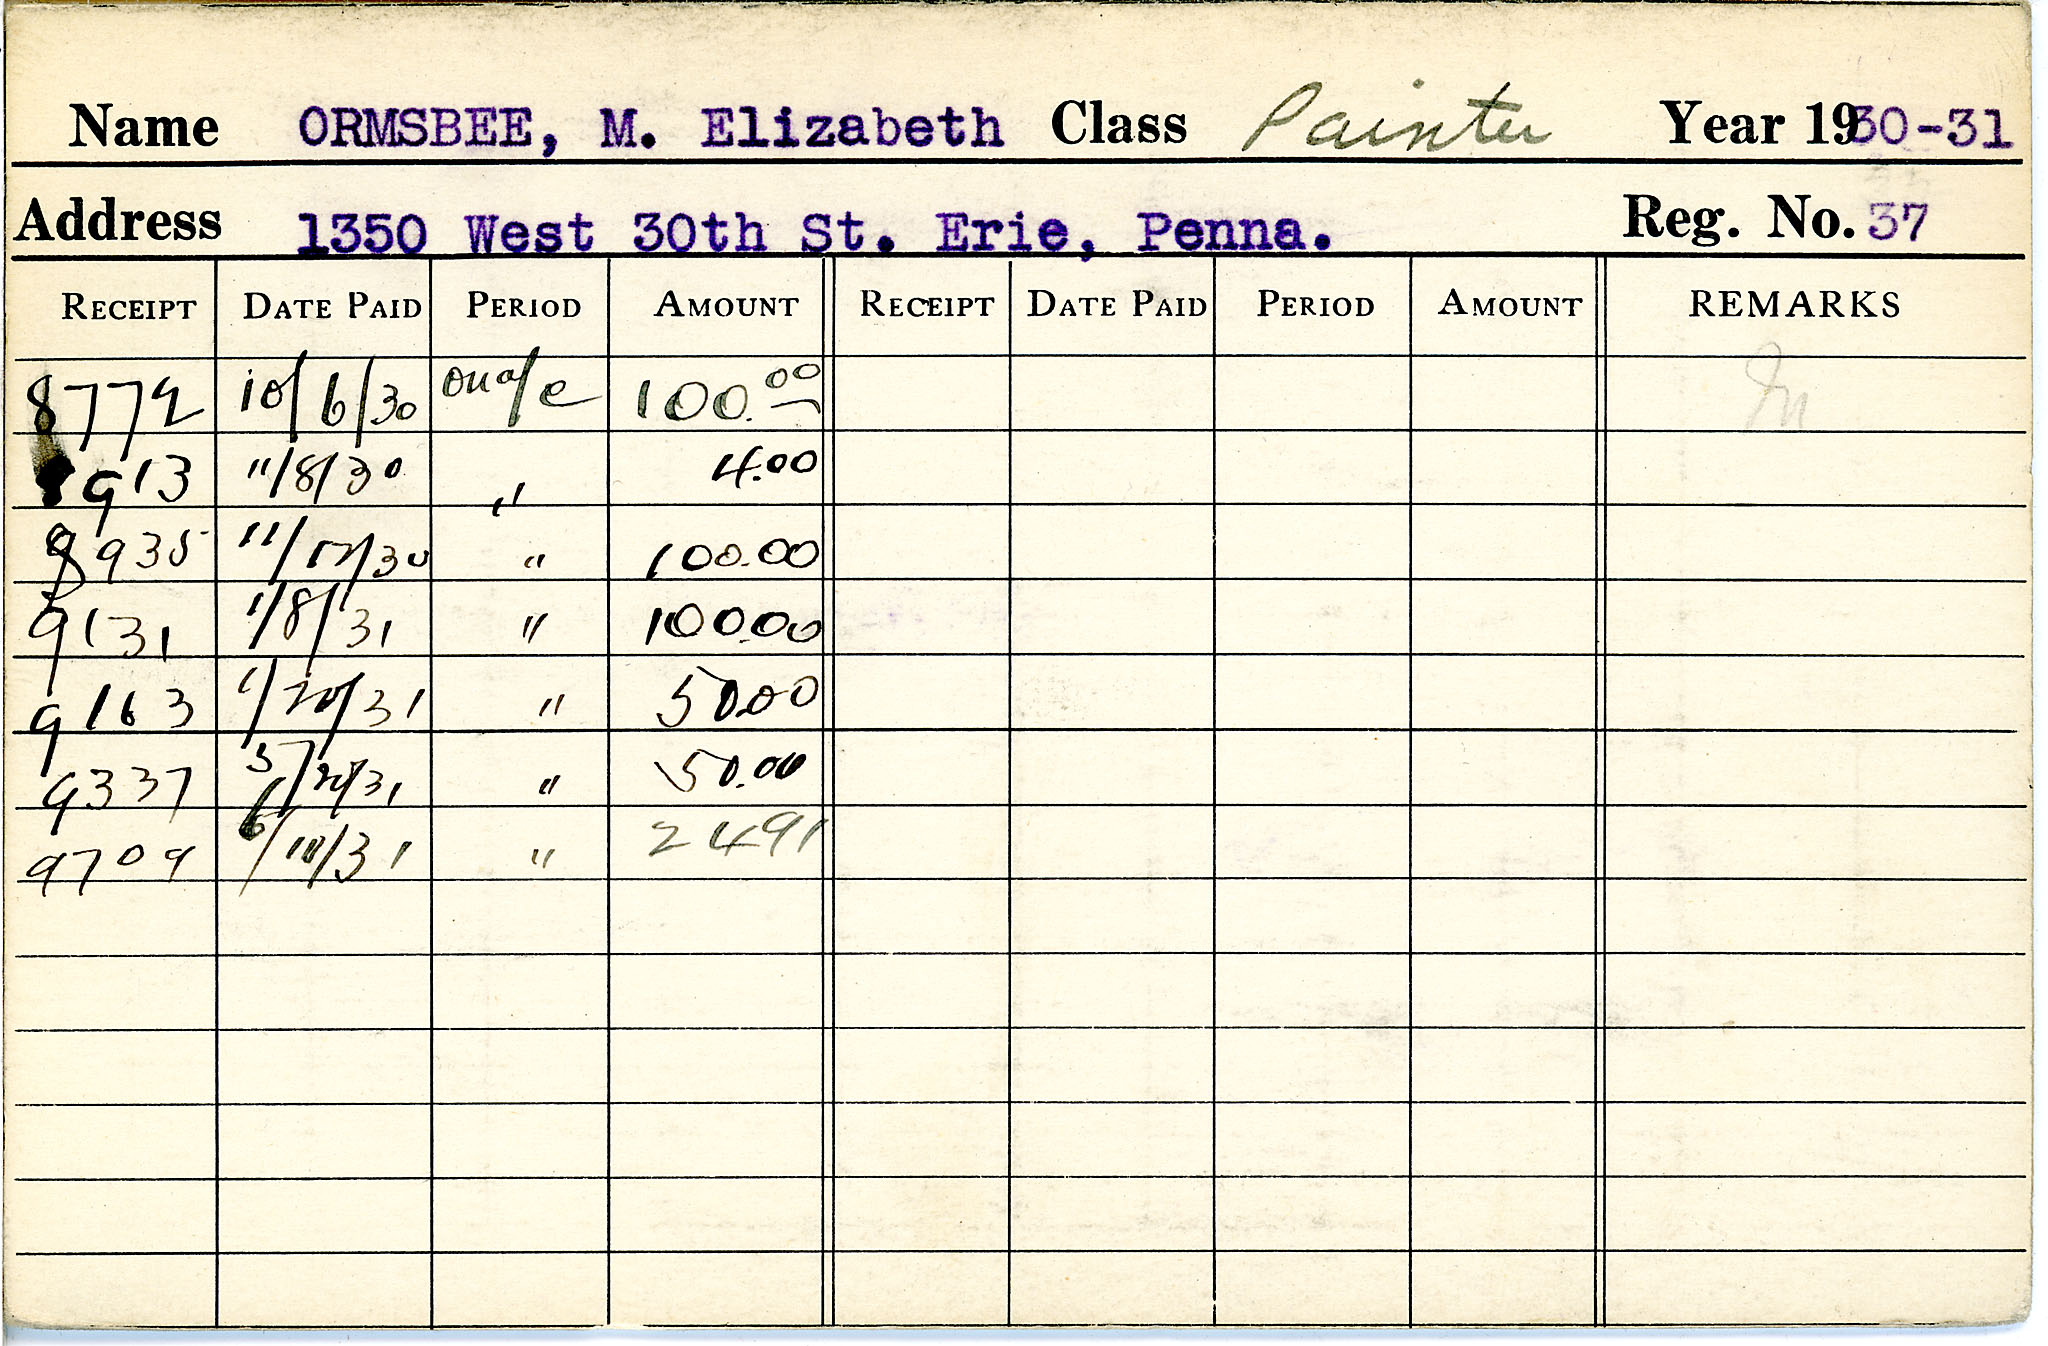 Name ORMSBEE, M. Elizabeth Class Painter Year 1930-31
Address 1350 West 30th St. Erie, Penna. Reg. No. 37
RECEIPT DATE PAID PERIOD AMOUNT RECEIPT DATE PAID PERIOD AMOUNT REMARKS
8772 10/6/30 on a/c 100.00
8913 11/8/30 " 4.00
8935 11/12/30 " 100.00
9131 1/8/31 " 100.00
9163 1/20/31 " 50.00
9337 " 50.00
9709 6/10/31 " 2491